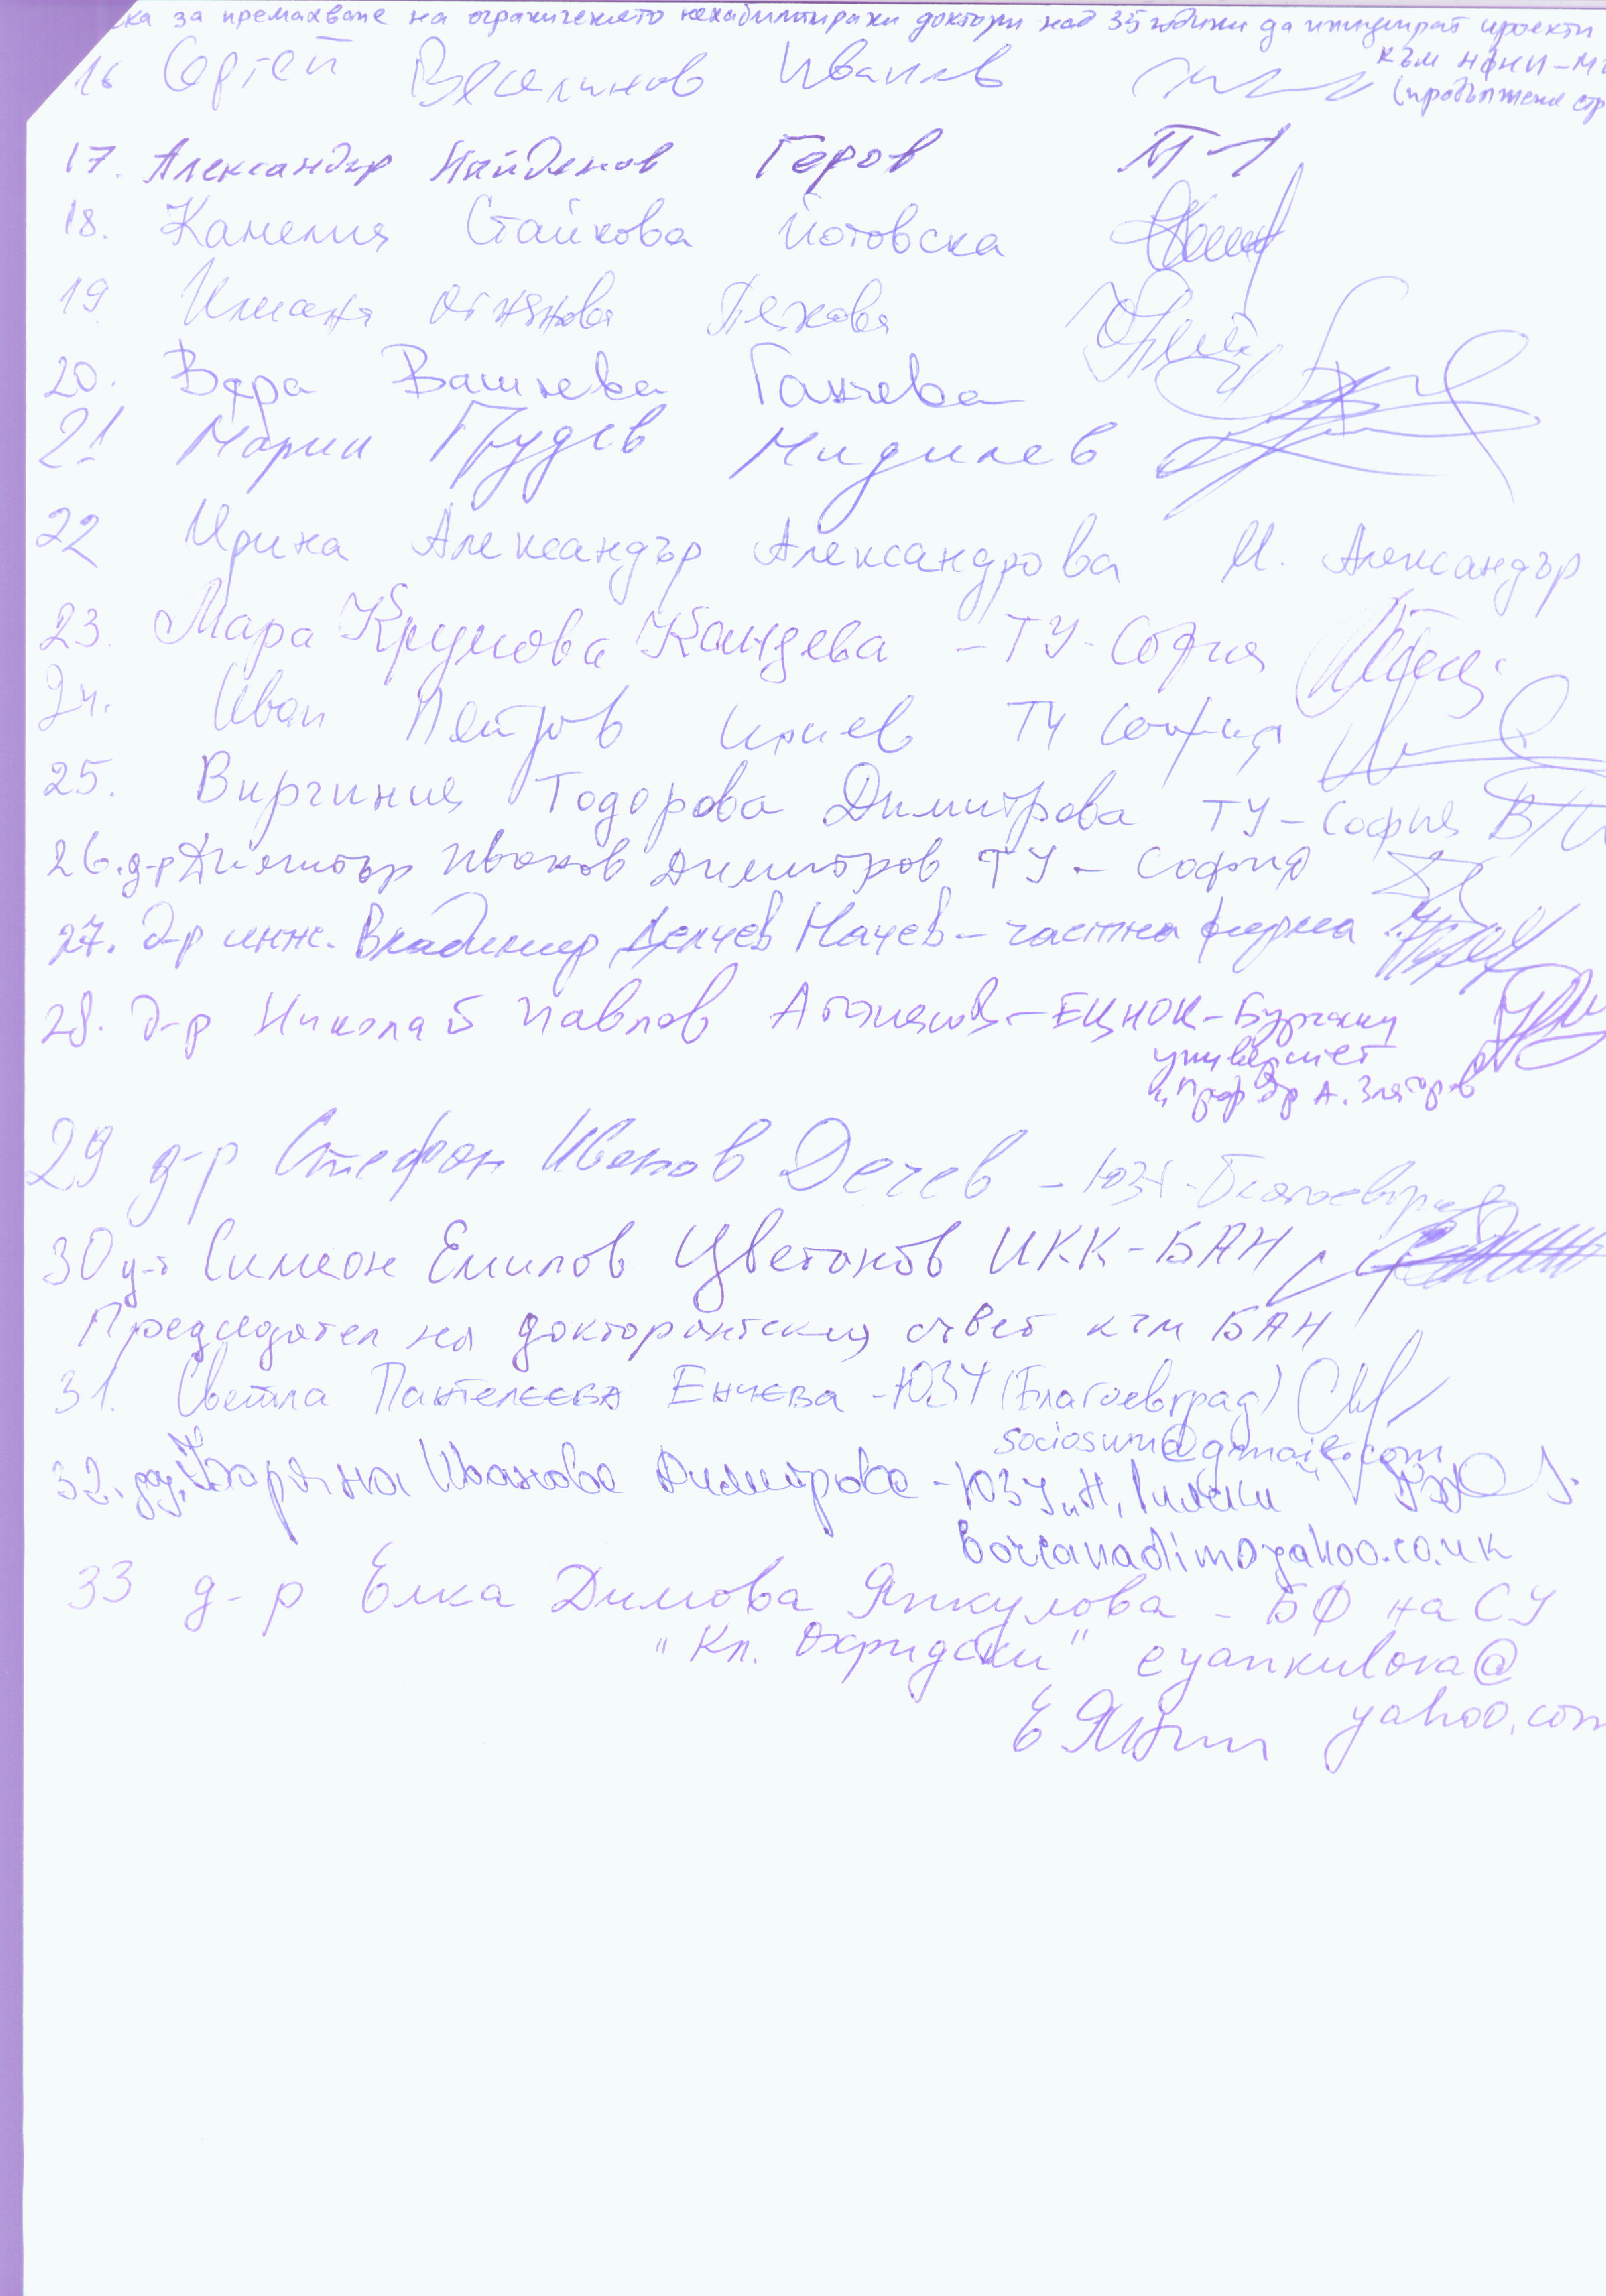 ска за премахване на ограничението нехабилитирани доктори над 35 години да инициират проекти
към НФНИ-М
(продължение стр
16 Сергей Веселинов Иванов
17. Александър Найденов Геров
18. Камелия Стайкова Йотовска
19 Илиана Огнянова Пехова
20. Вяра Ганчева
21 Марин Грудев Мидилев
22 Ирина Александър Александрова И. Александър
23. Мара Крумова Кандева - ТУ-София
24. Иван Петров ТУ София
25. Виргиния Тодорова Димитрова ТУ-София
26. д-р Димитър Иванов Димитров ТУ - София
27. д-р инж. Владимир Делчев Начев - частна фирма
28. д-р Николай Павлов - ЕЦНОК - Бургаски
университет
"Проф. д-р А. Златаров"
29 д-р Стефан Иванов Дечев - ЮЗУ - Благоевград
30 д-р Симеон Емилов Цветанов ИКК-БАН
Председател на докторантския съвет към БАН
31. Светла Пантелеева Енчева - ЮЗУ (Благоевград)
sociosum@gmail.com
32. доц. Боряна Иванова Димитрова - ЮЗУ "Н. Рилски"
borianadim@yahoo.co.uk
33 д-р Елка Димова Янкулова - БФ на СУ
"Кл. Охридски" eyankulova@
yahoo.com